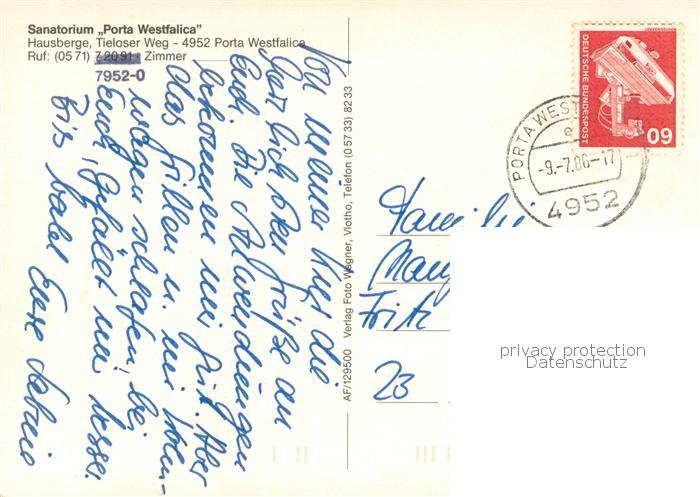 Sanatorium „Porta Westfalica"
Hausberge, Tieloser Weg - 4952 Porta Westfalica
Ruf: (05 71) 7 20 91 - Zimmer
7952-0
Von meiner Kur die
herzlichsten Grüße an
Euch. Die Anwendungen
bekommen mir gut. Aber
das Stillen u. im Wohn-
wagen schlafen, bei
Euch, gefällt mir besser.
Bis bald Eure
AF/129500 Verlag Foto Wagner, Vlotho, Telefon (0 57 33) 82 33
DEUTSCHE BUNDESPOST
60
PORTA WEST
e
-9.-7.86-17
4952
Familie
Fritz
23
privacy protection
Datenschutz